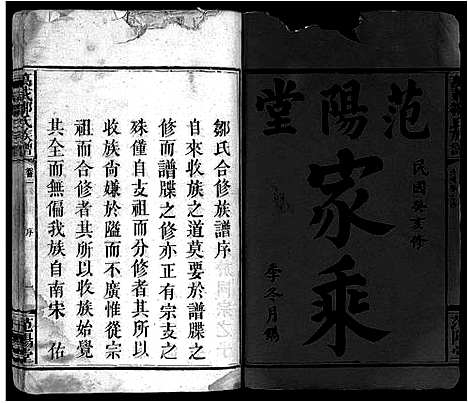 范陽堂
民國癸亥修
家乘
季冬月鐫
鄒氏合修族譜序
自來收族之道莫要於譜牒之
修而譜牒之修亦正有宗支之
殊僅自支祖而分修者其所以
收族尚嫌於隘而不廣惟從宗
祖而合修者其所以收族始覺
其全而無偏我族自南宋 佑
鄒氏族譜
序
范陽堂